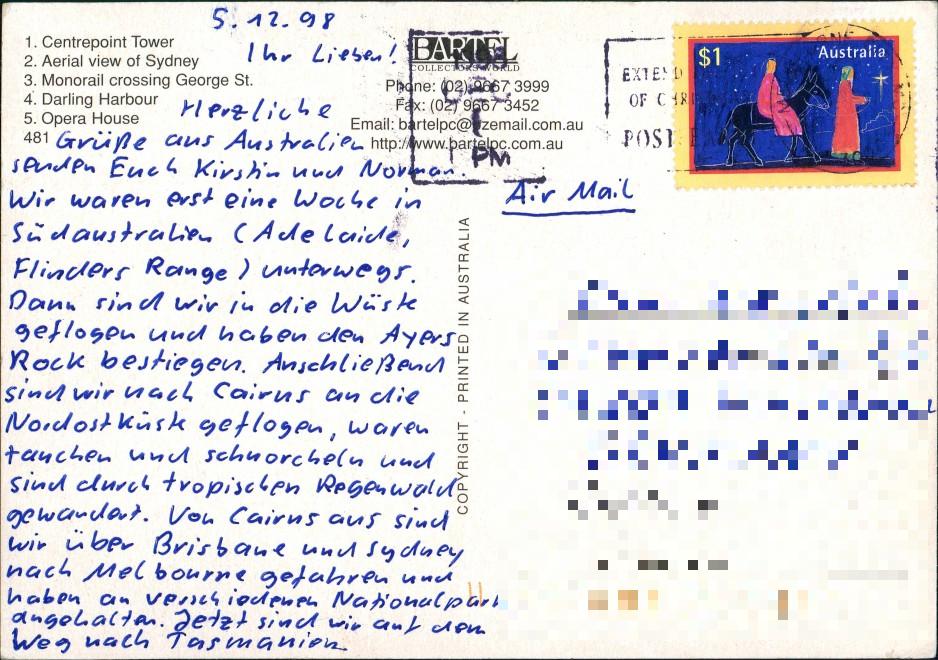 5.12.98
1. Centrepoint Tower
2. Aerial view of Sydney
3. Monorail crossing George St.
4. Darling Harbour
5. Opera House
481
Ihr Lieben!
Herzliche
Grüße aus Australien
senden Euch Kirstin und Norman.
Wir waren erst eine Woche in
Südaustralien (Adelaide,
Flinders Range) unterwegs.
Dann sind wir in die Wüste
geflogen und haben den Ayers
Rock bestiegen. Anschließend
sind wir nach Cairns an die
Nordostküste geflogen, waren
tauchen und schnorcheln und
sind durch tropischen Regenwald
gewandert. Von Cairns aus sind
wir über Brisbane und Sydney
nach Melbourne gefahren und
haben an verschiedenen Nationalpark
angehalten. Jetzt sind wir auf dem
Weg nach Tasmanien
BARTEL
COLLECTORS WORLD
Phone: (02) 9667 3999
Fax: (02) 9667 3452
Email: bartelpc@ozemail.com.au
http://www.bartelpc.com.au
PM
COPYRIGHT - PRINTED IN AUSTRALIA
Air Mail
EXTEND
OF CHRI
POST E
$1
Australia